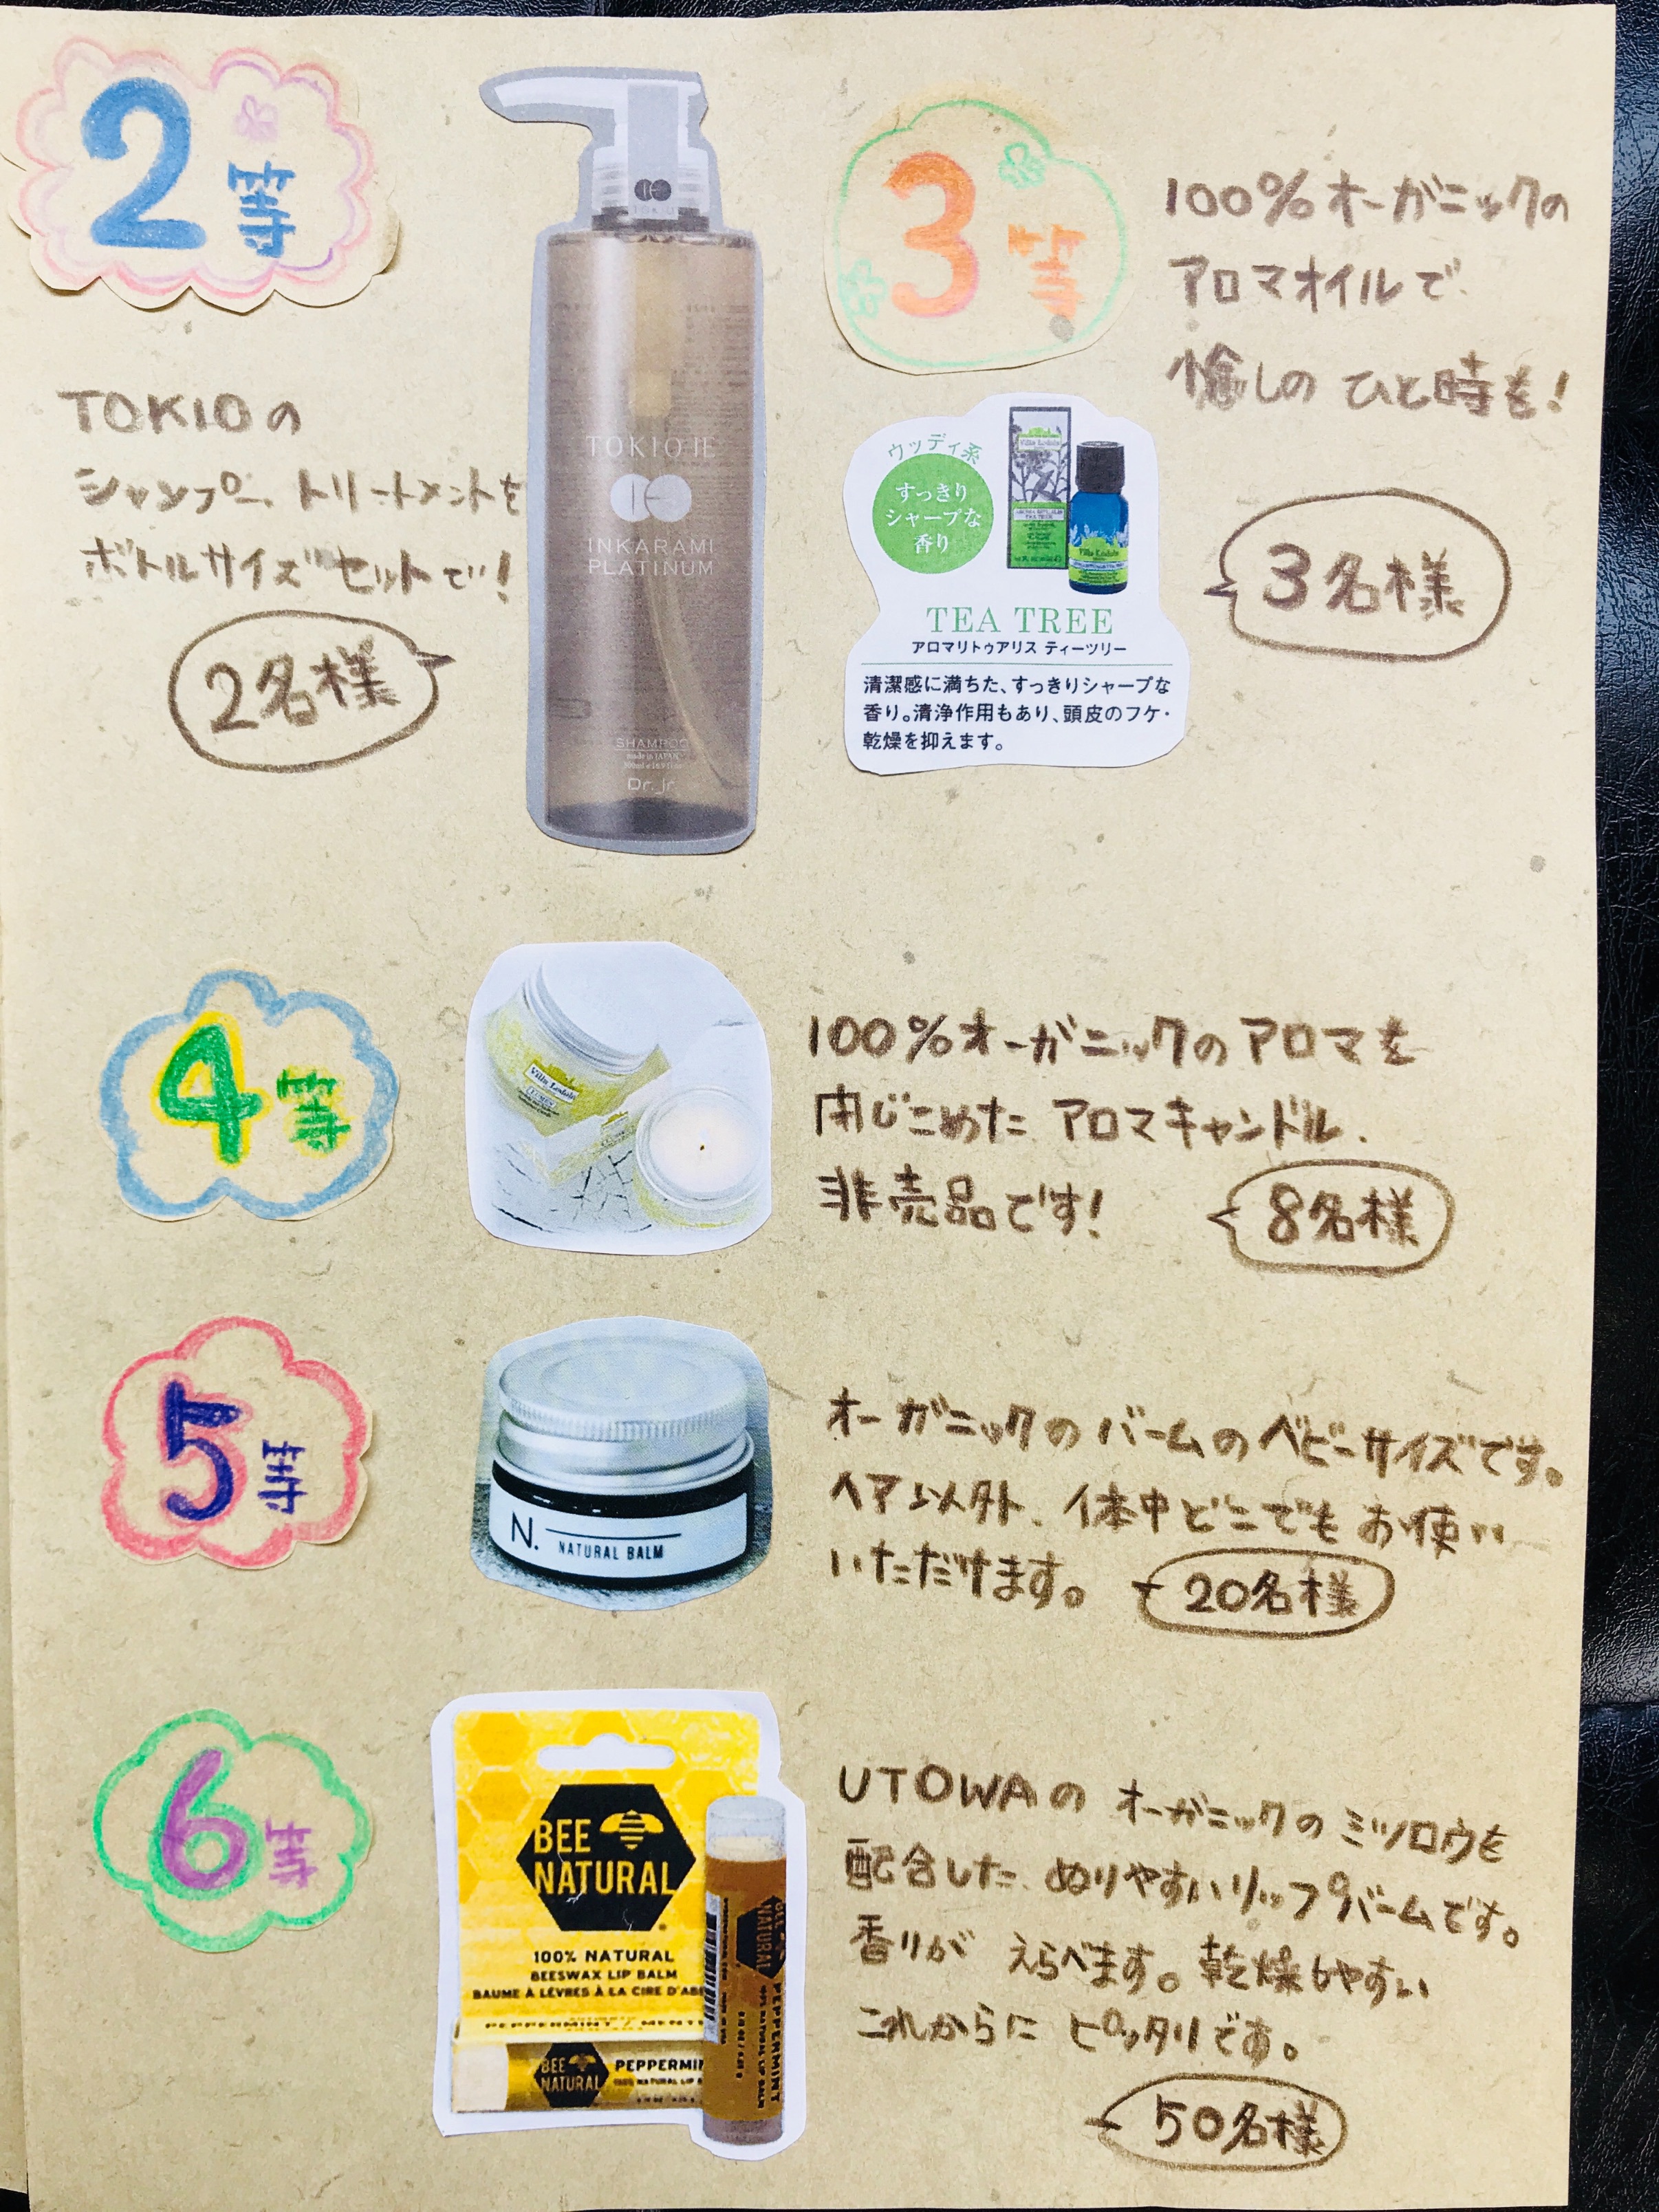 2等
TOKIOの
シャンプー、トリートメントを
ボトルサイズセットで!
2名様
TOKIO IE
INKARAMI
PLATINUM
SHAMPOO
made in JAPAN
Dr._Jr.
3等
100%オーガニックの
アロマオイルで
愉しのひと時を!
3名様
ウッディ系
すっきり
シャープな
香り
Villa Lodola
TEA TREE
アロマリトゥアリス ティーツリー
清潔感に満ちた、すっきりシャープな
香り。清浄作用もあり、頭皮のフケ・
乾燥を抑えます。
4等
Villa Lodola
LUMEN
100%オーガニックのアロマを
閉じこめた アロマキャンドル.
非売品です!
8名様
5等
N.
NATURAL BALM
オーガニックのバームのベビーサイズです。
ヘアー以外、体中どこでもお使い
いただけます。
20名様
6等
BEE
NATURAL
100% NATURAL
BEESWAX LIP BALM
BAUME À LÈVRES À LA CIRE D'AB
PEPPERMINT / MENTH
BEE
NATURAL
PEPPERMIN
BEE
NATURAL
PEPPERMINT
UTOWAの オーガニックのミツロウを
配合した ぬりやすいリップバームです。
香りが えらべます。乾燥しやすい
これからに ピッタリです。
50名様